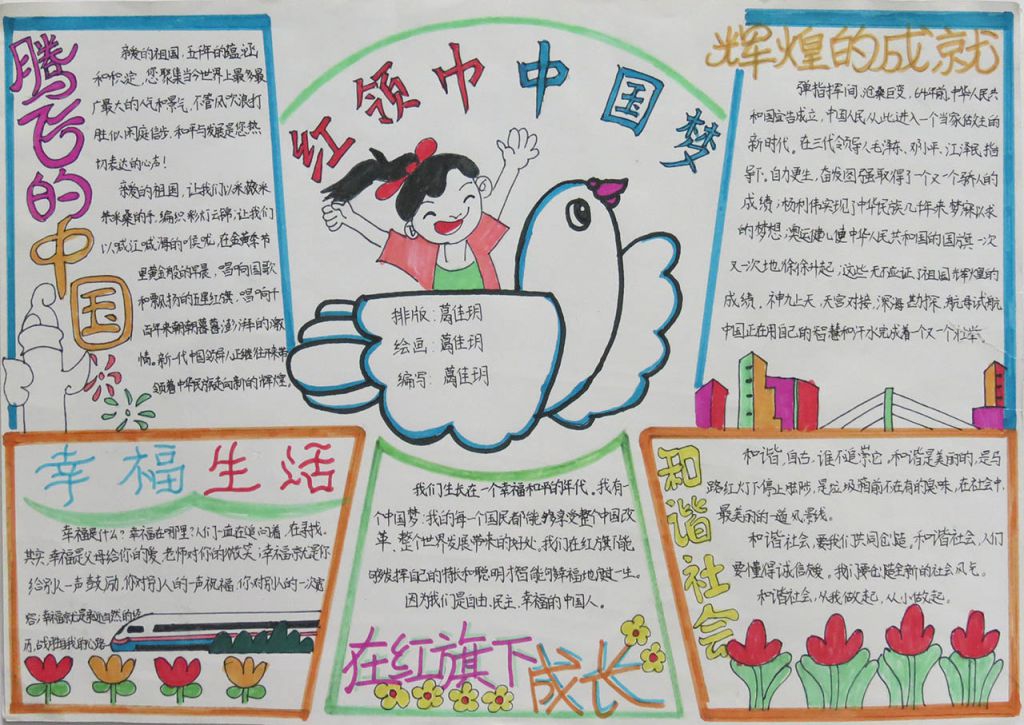 红领巾中国梦
排版:葛佳玥
绘画:葛佳玥
编写:葛佳玥
腾飞的中国
亲爱的祖国,五千年的蕴
和积淀,您聚集当今世界上最多最
广最大的人气和景气,不管风吹浪打
胜似闲庭信步,和平与发展是您热
切表达的心声!
亲爱的祖国,让我们以米
桑的手,编织彩灯云锦;让我们
以喊江喊海的喉咙,在金黄季节
里黄金般的早晨,唱响国歌
和飘扬的五星红旗,唱响
百年来朝朝暮暮澎湃的激
情。新一代中国领导人正继往开来
领着中华民族走向新的辉煌
辉煌的成就
弹指挥间,沧桑巨变,64年前,中华人民共
和国宣告成立,中国人民从此进入一个当家做主的
新时代。在三代领导人毛泽东、邓小平、江泽民指
导下,自力更生,奋发图强取得了一个又一个骄人的
成绩;杨利伟实现了中华民族几千年来梦寐以求
的梦想;奥运健儿使中华人民共和国的国旗一次
又一次地徐徐升起,这些无不应证了祖国辉煌的
成绩。神九上天,天宫对接,深海勘探,航母试航
中国正在用自己的智慧和汗水完成着一个又一个壮举。
幸福生活
幸福是什么?幸福在哪里?人们一直在追问着,在寻找。
其实,幸福是父母给你的爱,老师对你的微笑;幸福就是你
给别人一声鼓励,你对别人的一声祝福,你对别人的一次
容;幸福就是
历,战胜自我的心路
我们生长在一个幸福和平的年代。我有
一个中国梦:我的每一个国民都能够享受整个中国改
革、整个世界发展带来的好处,我们在红旗下能
够发挥自己的特长和聪明才智能够幸福地过一生。
因为我们是自由、民主、幸福的中国人。
在红旗下成长
和谐社会
和谐,自古,谁不追崇它,和谐是美丽的,是马
路红灯下停止的脚步,是垃圾箱前不在有的臭味,在社会中,
最美丽的一道风景线。
和谐社会,要我们共同创造。和谐社会,人们
要懂得诚信友爱。我们要创造全新的社会风气。
和谐社会,从我做起,从小做起。